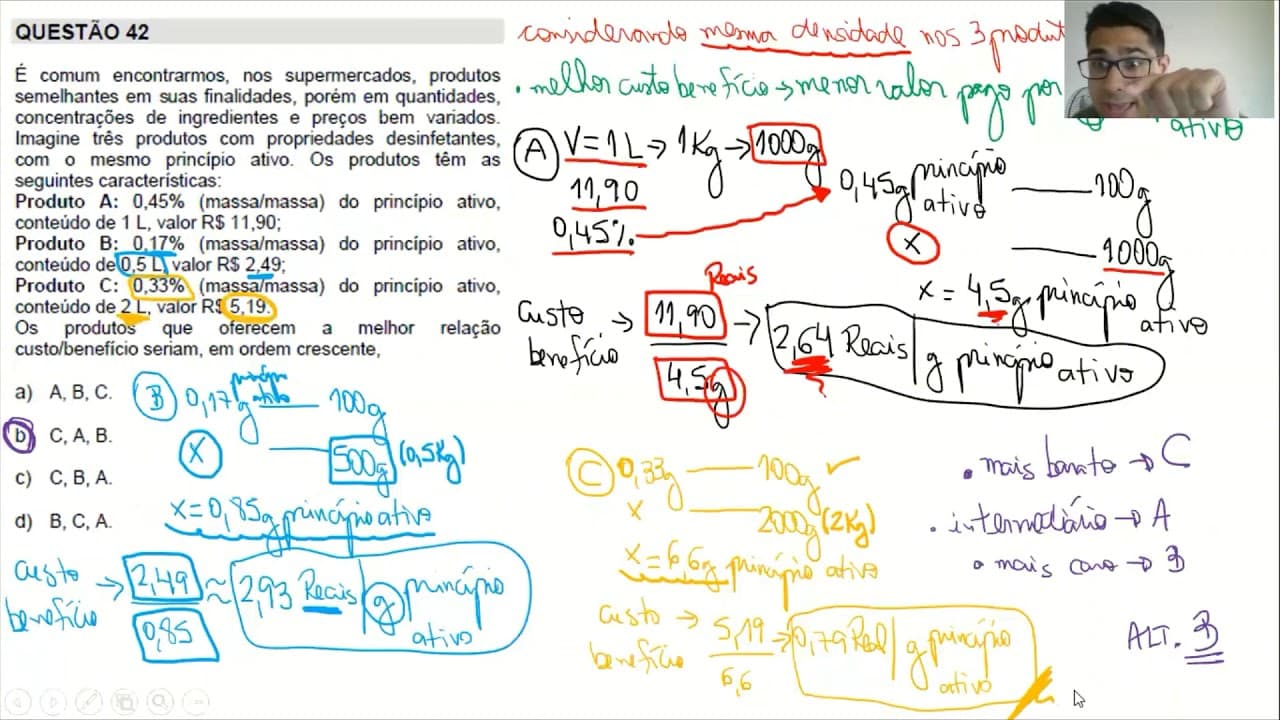 QUESTÃO 42
É comum encontrarmos, nos supermercados, produtos
semelhantes em suas finalidades, porém em quantidades,
concentrações de ingredientes e preços bem variados.
Imagine três produtos com propriedades desinfetantes,
com o mesmo princípio ativo. Os produtos têm as
seguintes características:
Produto A: 0,45% (massa/massa) do princípio ativo,
conteúdo de 1 L, valor R$ 11,90;
Produto B: 0,17% (massa/massa) do princípio ativo,
conteúdo de 0,5 L, valor R$ 2,49;
Produto C: 0,33% (massa/massa) do princípio ativo,
conteúdo de 2 L, valor R$ 5,19.
Os produtos que oferecem a melhor relação
custo/benefício seriam, em ordem crescente,
a) A, B, C.
b) C, A, B.
c) C, B, A.
d) B, C, A.
considerando mesma densidade nos 3 produt
• melhor custo benefício → menor valor pago por
ativo
A V = 1 L → 1 Kg → 1000g
11,90
0,45%
0,45g princípio ativo — 100g
x — 1000g
x = 4,5g princípio ativo
custo benefício → 11,90 Reais
4,5g
→ 2,64 Reais | g princípio ativo
B 0,17g princípio ativo — 100g
X — 500g (0,5Kg)
x = 0,85g princípio ativo
custo benefício → 2,49
0,85
≈ 2,93 Reais | g princípio ativo
C 0,33g — 100g
x — 2000g (2Kg)
x = 6,6g princípio ativo
custo benefício → 5,19
6,6
→ 0,79 Real | g princípio ativo
• mais barato → C
• intermediário → A
• mais caro → B
ALT. B